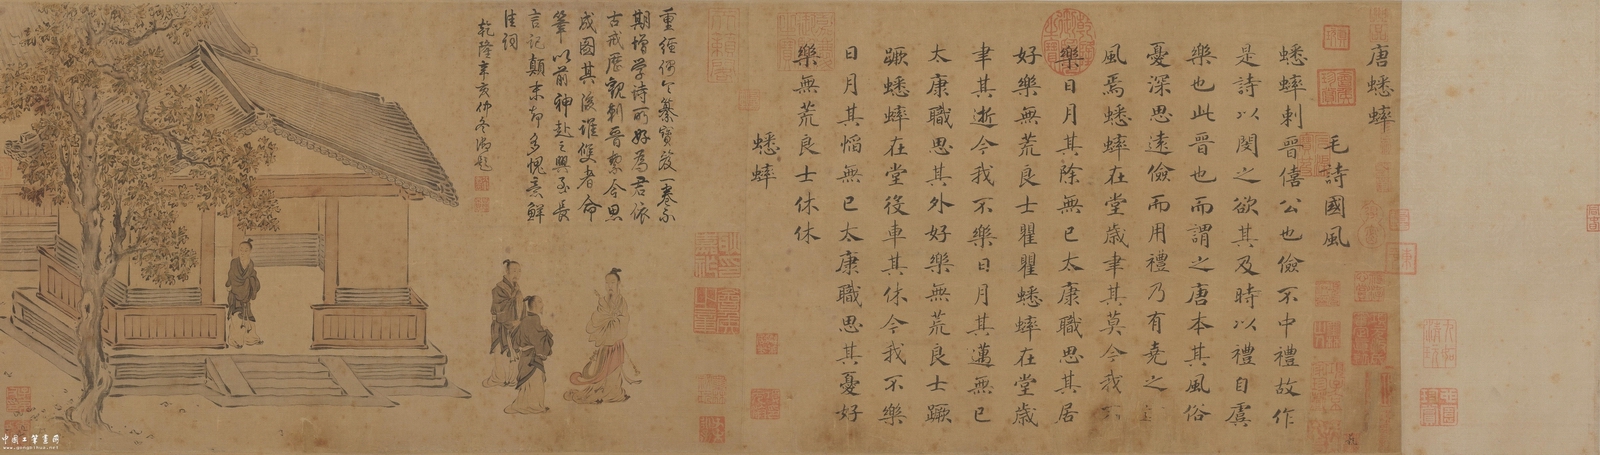 唐蟋蟀
毛詩國風
蟋蟀刺晉僖公也儉不中禮故作
是詩以閔之欲其及時以禮自虞
樂也此晉也而謂之唐本其風俗
憂深思遠儉而用禮乃有堯之
風焉蟋蟀在堂歲聿其莫今我不
樂日月其除無已太康職思其居
好樂無荒良士瞿瞿蟋蟀在堂歲
聿其逝今我不樂日月其邁無已
太康職思其外好樂無荒良士蹶
蹶蟋蟀在堂役車其休今我不樂
日月其慆無已太康職思其憂好
樂無荒良士休休
蟋蟀
重經
期增學詩所好為君依
古戒歷觀刺晉黎今思
成圖其後誰雙者命
筆以前神赴之興至長
言記顛末卻多愧意鮮
佳詞
乾隆辛亥仲冬御題
中國工筆畫網
www.gongbihua.net